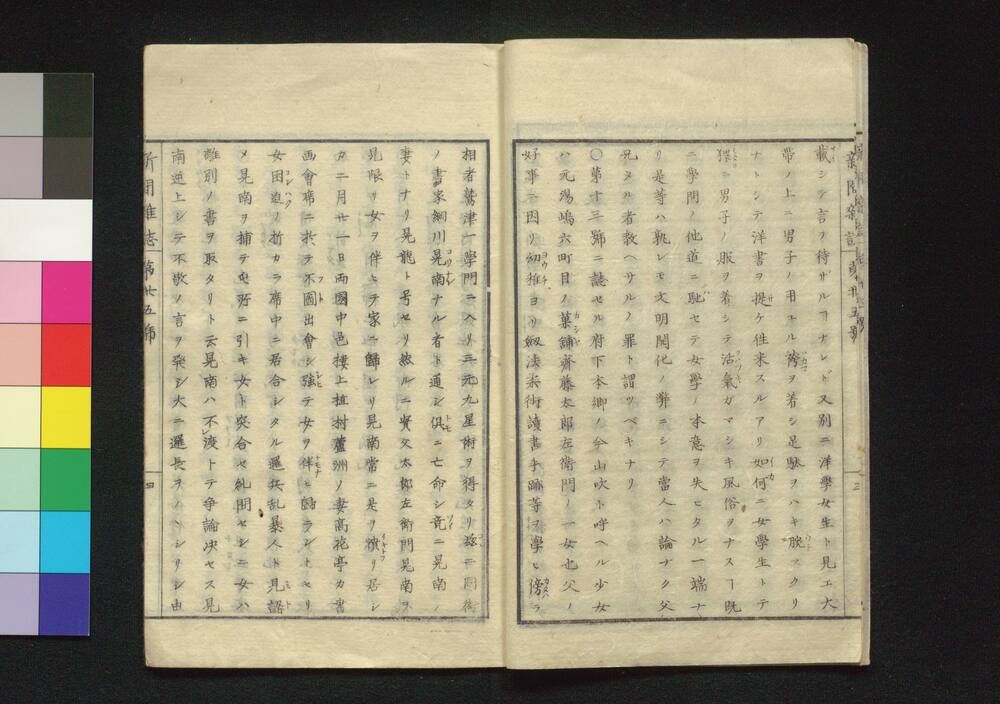 載シテ言ヲ待ザルヿナレド又別ニ洋學女生ト見エ大
帶ノ上ニ男子ノ用エル袴ヲ着シ足駄ヲハキ腕マクリ
ナトシテ洋書ヲ提ケ徃来スルアリ如何ニ女學生トテ
猥ニ男子ノ服ヲ着シテ活氣ガマシキ風俗ヲナスヿ既
ニ學問ノ他道ニ馳セテ女學ノ本意ヲ失ヒタル一端ナ
リ是等ハ孰レモ文明開化ノ弊ニシテ當人ハ論ナク父
兄タル者教ヘサルノ罪ト謂ツベキナリ
〇第十三號ニ誌セル府下本郷ノ仝山吹ト呼ヘル少女
ハ元湯嶋六町目ノ菓鋪齊藤太郎左衛門ノ一女也父ノ
好事ニ因リ幼稚ヨリ劔法柔術讀書手跡等ヲ學ヒ傍ラ
相者鷲津一學門ニ入リ三元九星術ヲ得タリ茲ニ同街
ノ書家細川晃南ナル者ト通シ俱ニ亡命シ竟ニ晃南ノ
妻トナリ晃龍ト号セリ然ルニ實父太郎左衛門晃南ヲ
見限リ女ヲ伴ヒテ家ニ歸レリ晃南常ニ是ヲ憤リ居シ
カ二月廿一日両國中邑樓上植村蘆洲ノ妻髙花亭カ書
画會席ニ於テ不圖出會シ強テ女ヲ伴ヒ歸ラントセリ
女困迫ノ折カラ席中ニ居合シタル邏兵乱暴人ト見認
メ晃南ヲ捕テ屯所ニ引キ女ト突合セ糺問セシニ女ハ
離別ノ書ヲ取タリト云晃南ハ不渡トテ争論决セス晃
南逆上シテ不敬ノ言ヲ発シ大ニ邏長ヲノヽシリシ由
新聞雑志 第廿五號 四